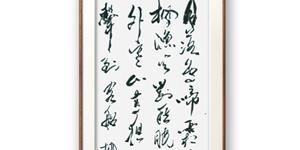 月落烏啼霜
楓漁火對愁眠
外寒山寺
聲到客船